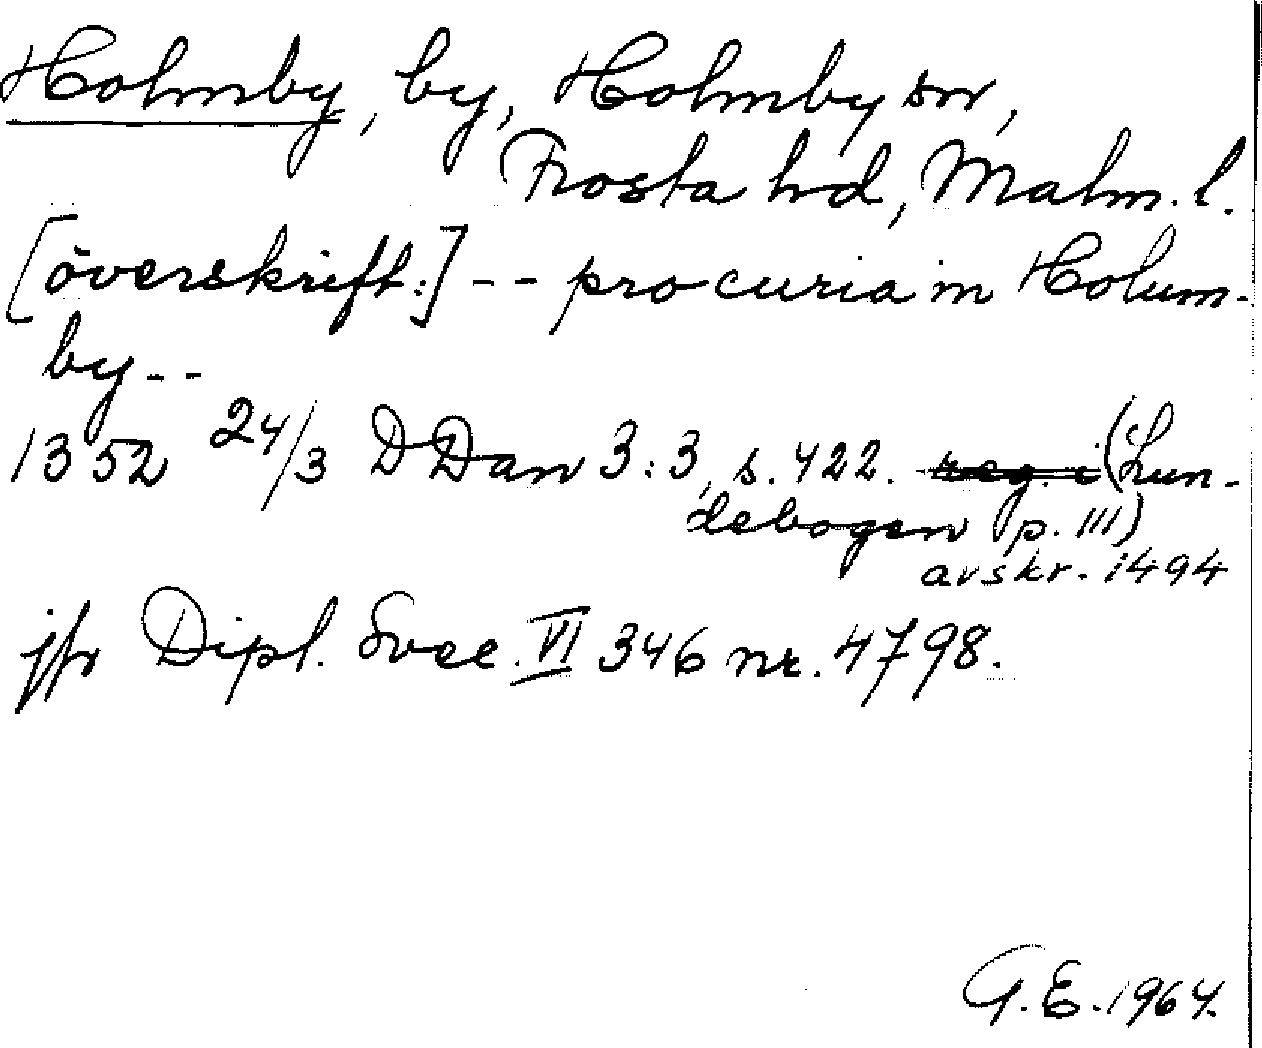 Holmby, by, Holmby sn,
Frosta hd, Malm. l.
[överskrift:] -- pro curia in Holum-
by --
1352 24/3 DDan 3:3, s. 422. reg. i (Lun-
debogen p. 111)
avskr. 1494
jfr Dipl. Svec. VI 346 nr. 4798.
G.E. 1964.